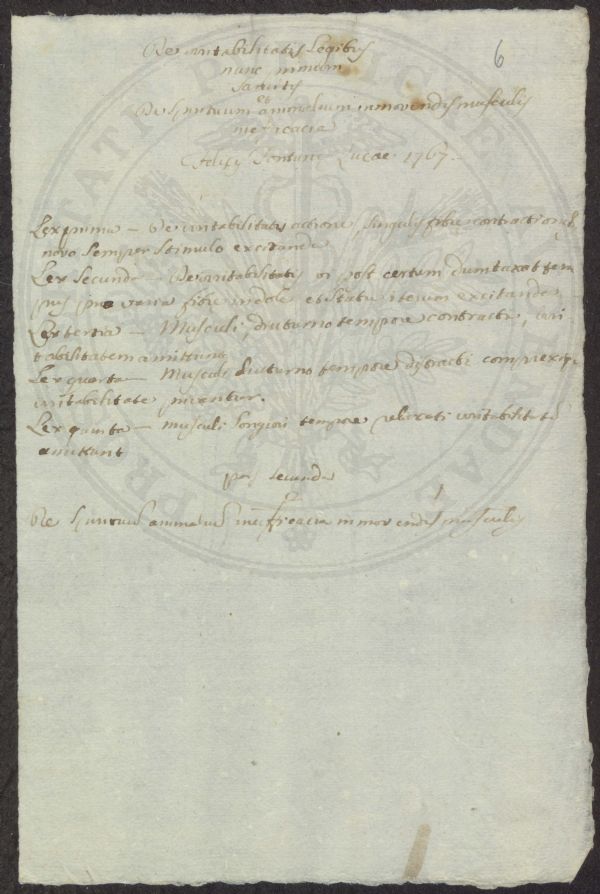 De irritabilitatis Legibus
nunc primum
sancitis
et
De Spirituum animalium in movendis musculis
inefficacia
Felicis Fontanę Lucae 1767
6
Lex prima — De irritabilitatis actione, singulis fibrę contractionibus
novo semper stimulo excitanda
Lex Secunda — De irritabilitatis vi post certum dumtaxat tem
pus pro varia fibrę indole et statu iterum excitanda
Lex tertia — Musculi, diuturno tempore contracti, irri
tabilitatem amittunt
Lex quarta — Musculi diuturno tempore distracti compressique
irritabilitate privantur.
Lex quinta — musculi longiori tempore vibrati irritabilitatem
amittunt
pars secunda
De Spirituum animalium inefficacia in movendis musculis